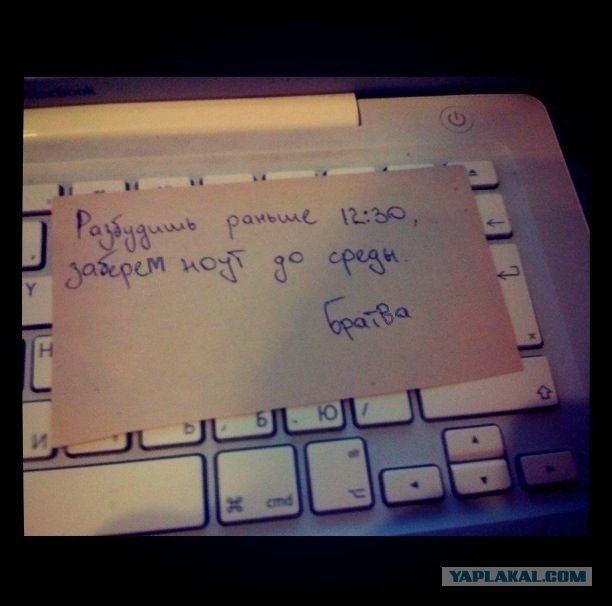 Разбудишь раньше 12:30,
заберем ноут до среды.
Братва
Y
H
И
Ь
, Б
. Ю
/
cmd
YAPLAKAL.COM